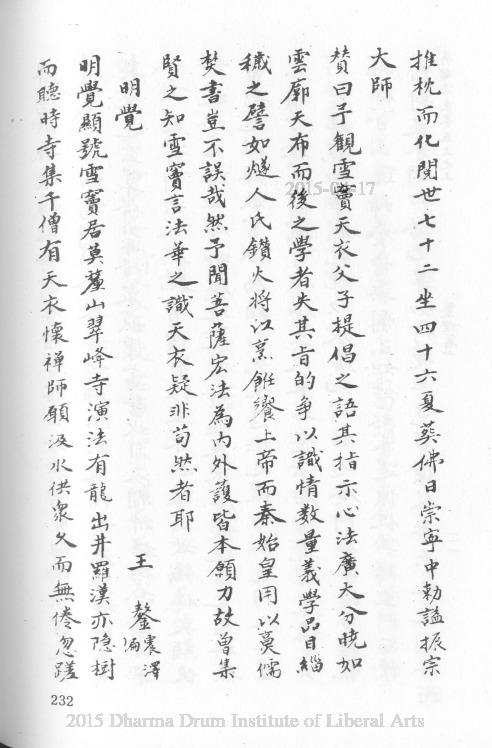 推枕而化閱世七十二坐四十六夏葬佛日崇寧中勅謚振宗
大師
贊曰予觀雪竇天衣父子提倡之語其指示心法廣大分曉如
雲廓天布而後之學者失其旨的爭以識情數量義學品目緇
穢之譬如燧人氏鑽火將以烹飪饗上帝而秦始皇用以莫儒
焚書豈不誤哉然予聞菩薩宏法為內外護皆本願力故曾集
賢之知雪竇言法華之識天衣疑非苟然者耶
明覺 王鏊震澤編
明覺顯號雪竇居莫釐山翠峰寺演法有龍出井羅漢亦隱樹
而聽時寺集千僧有天衣懷禪師願汲水供衆久而無倦忽蹉
232
2015-03-17
2015 Dharma Drum Institute of Liberal Arts